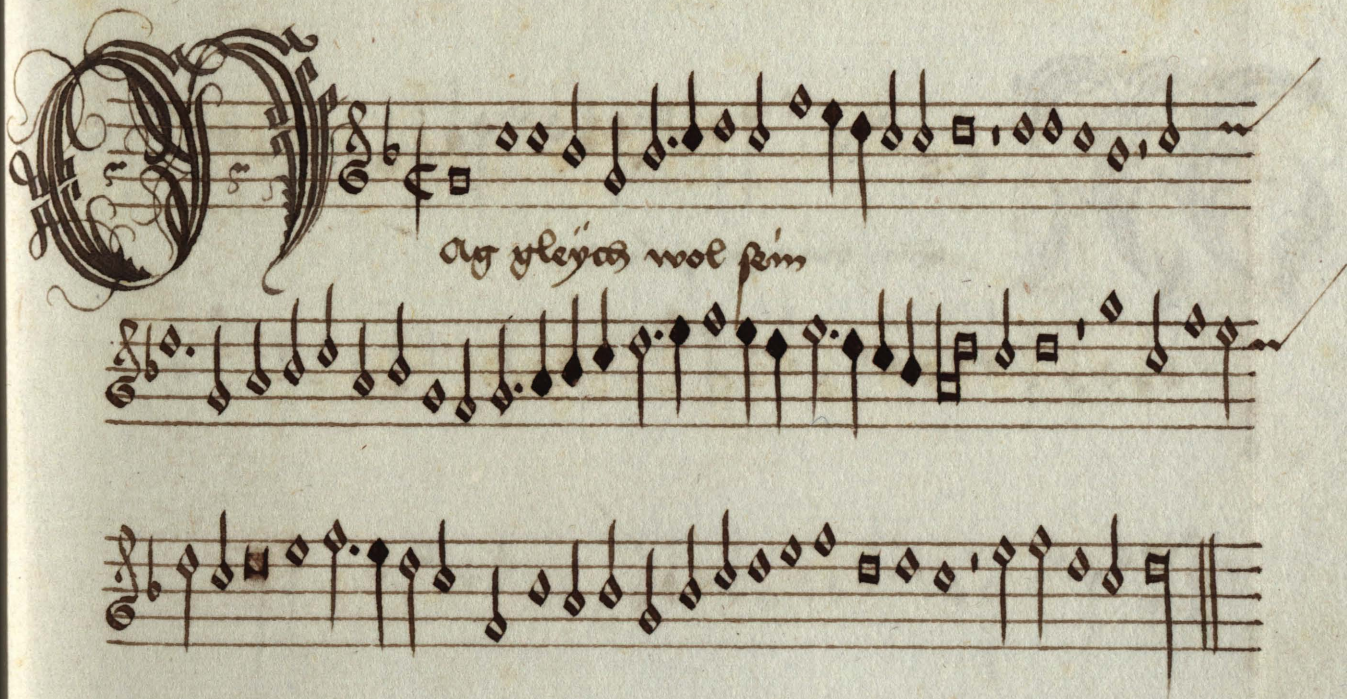 Mag gleych wol sein